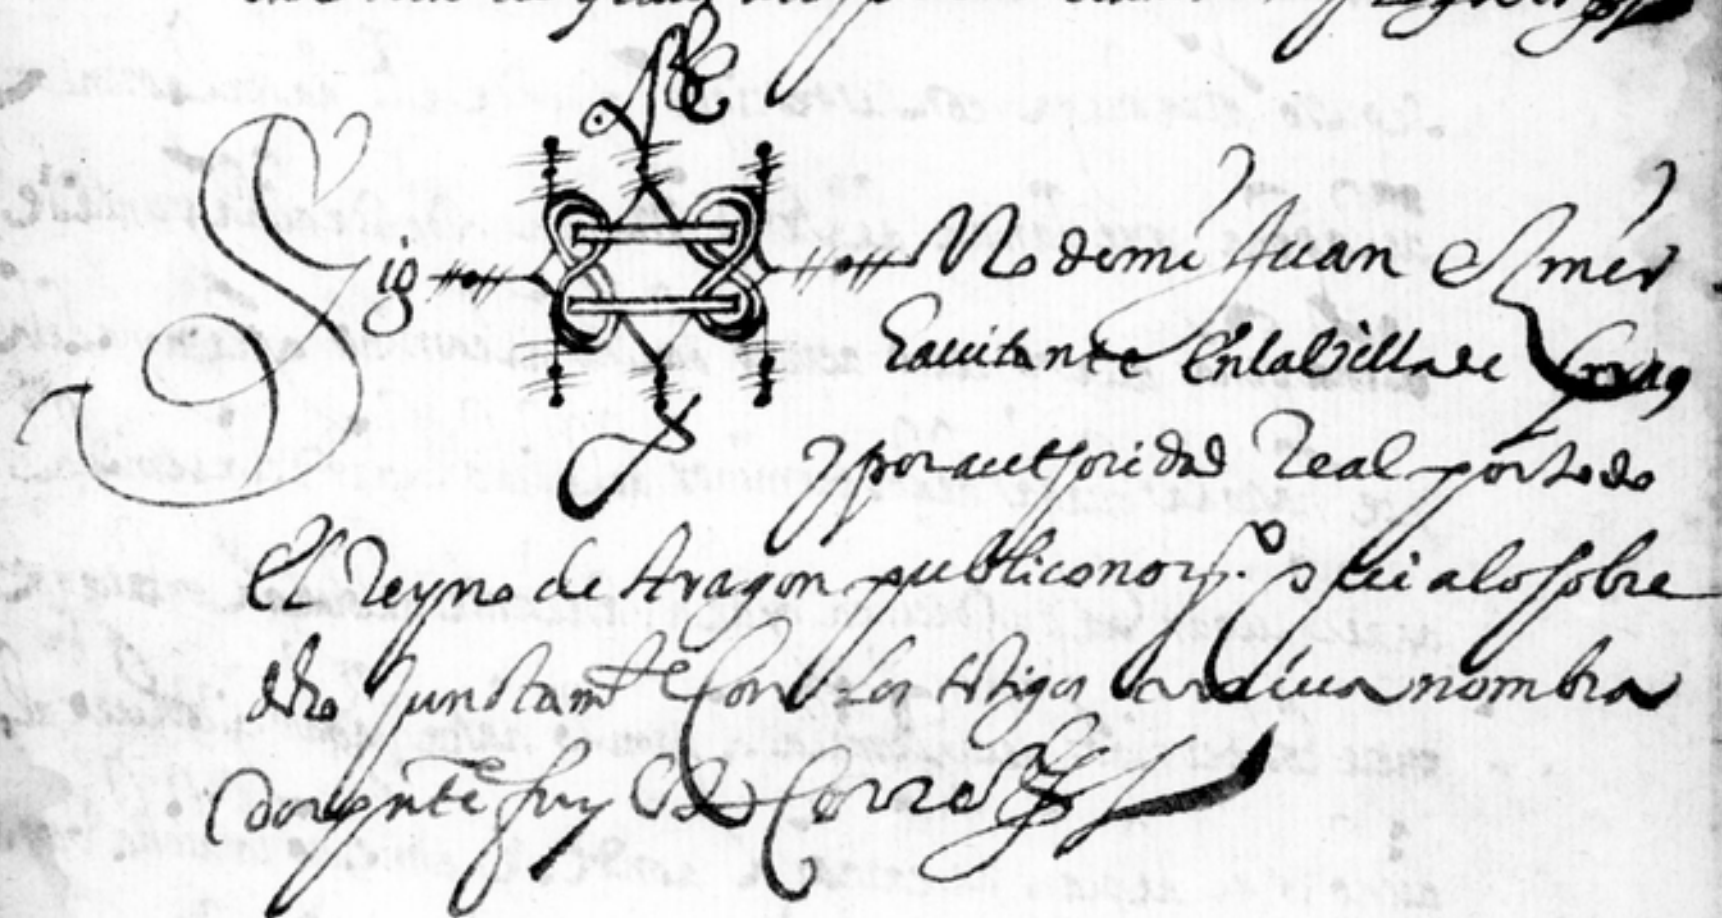 Sig no de mi Juan
hauitante en la Villa de
y por authoridad Real por todo
El Reyno de Aragon publico not.º q̃ a lo sobre
dho Junctam.te Con los testigos arriua nombra
dos pñte fuy et Cerre